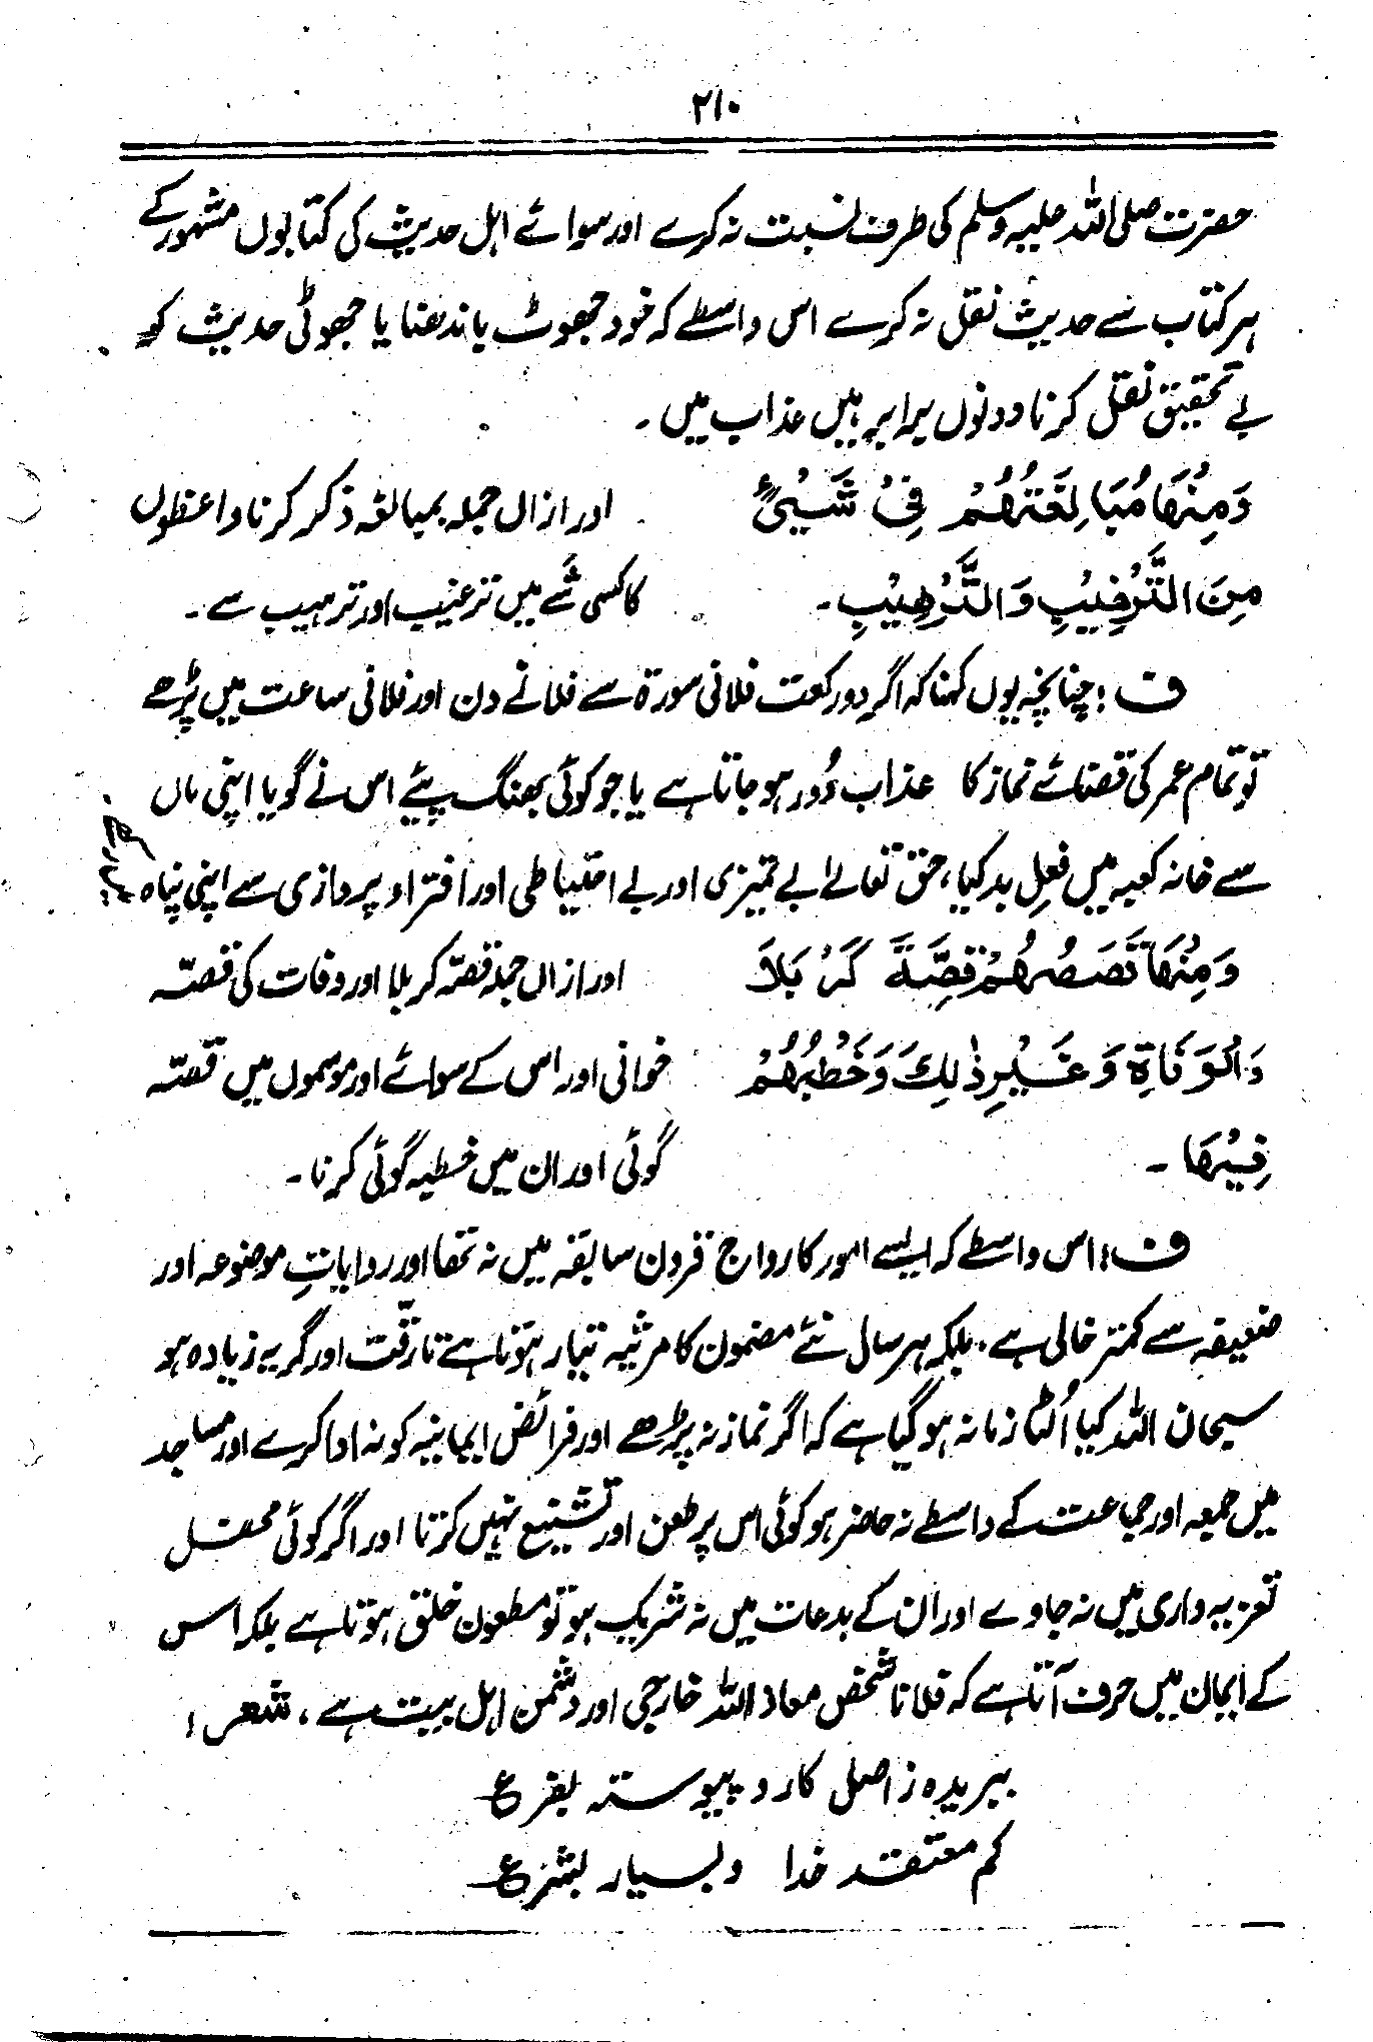 ۲۱۰
حضرت صلی اللہ علیہ وسلم کی طرف نسبت نہ کرے اور سوائے اہل حدیث کی کتابوں مشہور کے
ہر کتاب سے حدیث نقل نہ کرے اس واسطے کہ خود جھوٹ باندھنا یا جھوٹی حدیث کو
بے تحقیق نقل کرنا دونوں برابر ہیں عذاب میں۔
وَمِنْهَا مُبَالِغَتُهُمْ فِیْ شَیْئٍ اور ازاں جملہ بمبالغہ ذکر کرنا واعظوں
مِنَ التَّرْغِیْبِ وَالتَّرْهِیْبِ۔ کا کسی شَے میں ترغیب اور ترہیب سے۔
ف: چنانچہ یوں کہنا کہ اگر دو رکعت فلانی سورۃ سے فلانے دن اور فلانی ساعت میں پڑھے
تو تمام عمر کی قضائے نماز کا عذاب دُور ہو جاتا ہے یا جو کوئی بھنگ پیئے اس نے گویا اپنی ماں
سے خانہ کعبہ میں فعلِ بد کیا، حق تعالےٰ بے تمیزی اور بے احتیاطی اور افتراء پردازی سے اپنی پناہ
میں رکھے۔
وَمِنْهَا قَصَصُهُمْ قِصَّةَ کَرْبَلَاَ اور ازاں جملہ قصّہ کربلا اور وفات کی قصّہ
وَالْوَفَاةِ وَغَیْرِ ذٰلِكَ وَخُطَبُهُمْ خوانی اور اس کے سوائے اور موسموں میں قصّہ
فِیْهَا۔ گوئی اور ان میں خطبہ گوئی کرنا۔
ف: اس واسطے کہ ایسے امور کا رواج قرون سابقہ میں نہ تھا اور روایاتِ موضوعہ اور
ضعیفہ سے کمتر خالی ہے۔ بلکہ ہر سال نئے مضمون کا مرثیہ تیار ہوتا ہے تا رقّت اور گریہ زیادہ ہو
سبحان اللہ کیا اُلٹا زمانہ ہو گیا ہے کہ اگر نماز نہ پڑھے اور فرائض ایمانیہ کو نہ ادا کرے اور مساجد
میں جمعہ اور جماعت کے واسطے نہ حاضر ہو کوئی اس پر طعن اور تشنیع نہیں کرتا اور اگر کوئی محفل
تعزیہ داری میں نہ جاوے اور ان کے بدعات میں نہ شریک ہو تو مطعون خلق ہوتا ہے بلکہ اس
کے ایمان میں حرف آتا ہے کہ فلانا شخص معاذ اللہ خارجی اور دشمن اہل بیت ہے، شعر:
ببریدہ ز اصل کار و پیوستہ بفرع
کم معتقد خدا و بسیار بشرع